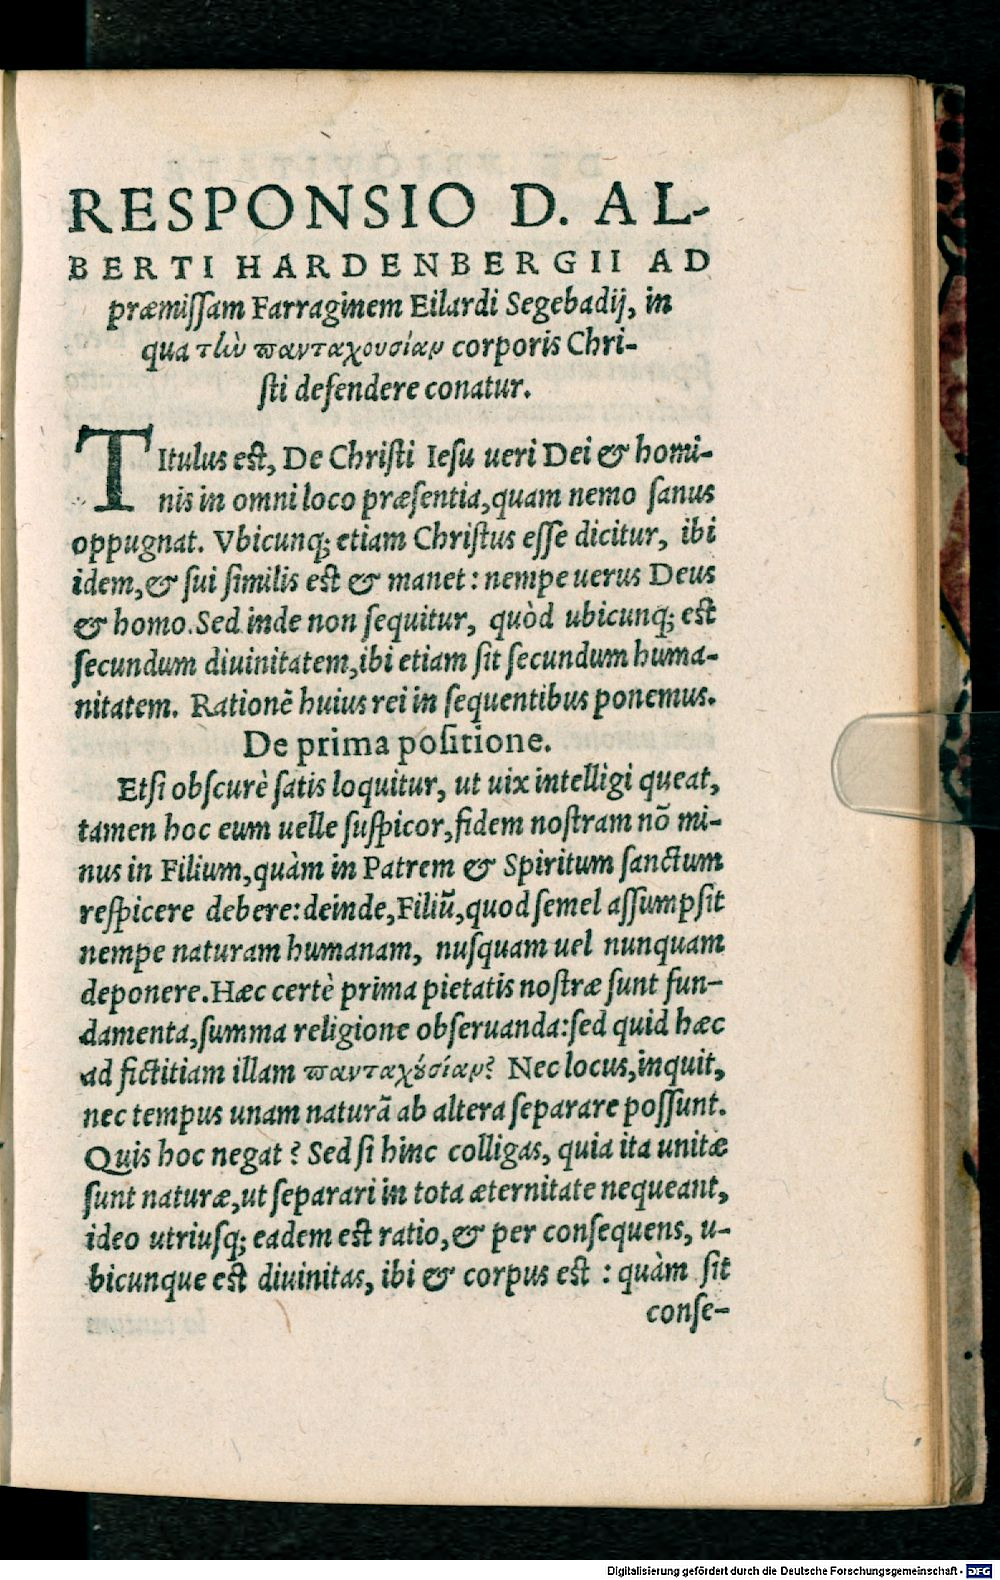 RESPONSIO D. AL-
BERTI HARDENBERGII AD
præmiſſam Farraginem Eilardi Segebadij, in
qua τὴν πανταχουσίαν corporis Chri-
ſti defendere conatur.
TItulus est, De Chriſti Ieſu ueri Dei & homi-
nis in omni loco præſentia, quam nemo ſanus
oppugnat. Vbicunq; etiam Chriſtus eſſe dicitur, ibi
idem, & ſui ſimilis est & manet: nempe uerus Deus
& homo. Sed inde non ſequitur, quòd ubicunq; est
ſecundum diuinitatem, ibi etiam ſit ſecundum huma-
nitatem. Rationẽ huius rei in ſequentibus ponemus.
De prima poſitione.
Etſi obſcurè ſatis loquitur, ut uix intelligi queat,
tamen hoc eum uelle ſuſpicor, fidem noſtram nõ mi-
nus in Filium, quàm in Patrem & Spiritum ſanctum
reſpicere debere: deinde, Filiũ, quod ſemel aſſumpſit
nempe naturam humanam, nuſquam uel nunquam
deponere. Hæc certè prima pietatis noſtræ ſunt fun-
damenta, ſumma religione obſeruanda: ſed quid hæc
ad fictitiam illam πανταχȣσίαν? Nec locus, inquit,
nec tempus unam naturã ab altera ſeparare poſſunt.
Quis hoc negat? Sed ſi hinc colligas, quia ita unitæ
ſunt naturæ, ut ſeparari in tota æternitate nequeant,
ideo utriuſq; eadem est ratio, & per conſequens, u-
bicunque est diuinitas, ibi & corpus est : quàm ſit
conſe-
Digitalisierung gefördert durch die Deutsche Forschungsgemeinschaft - DFG